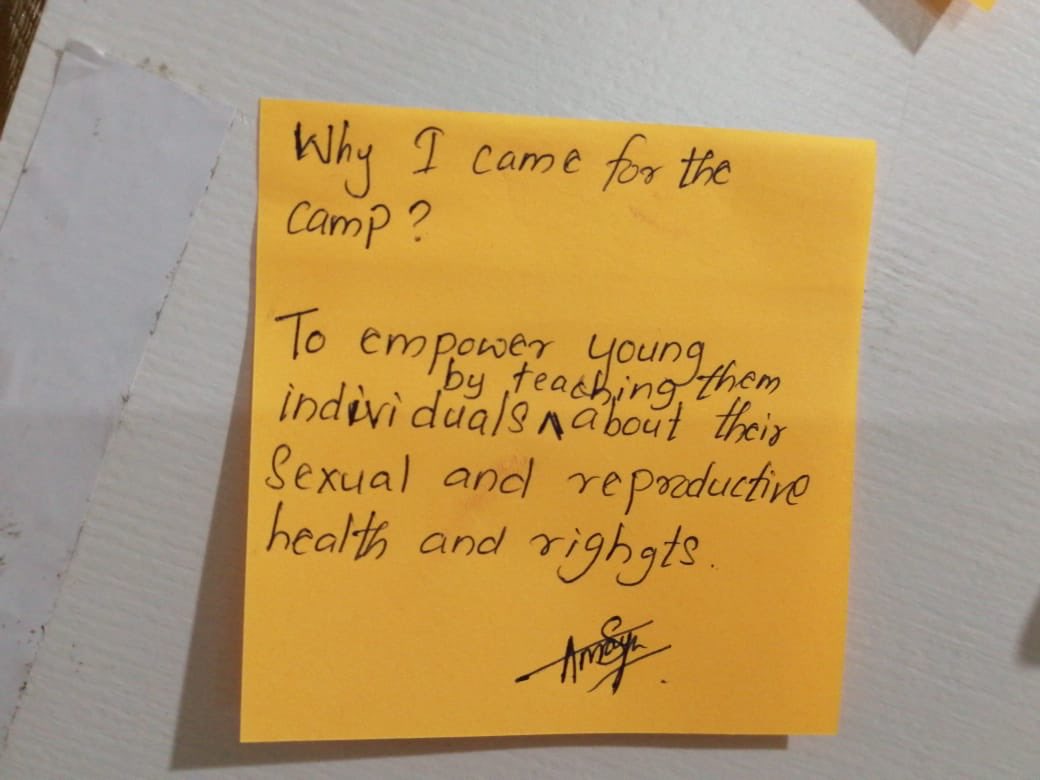 Why I came for the
camp?
To empower young
by teaching them
individuals ^ about their
Sexual and reproductive
health and righgts.